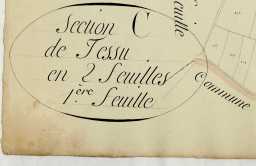 Section C
de Tessu
en 2 Feuilles
1.ère Feuille
Feuille
Commune